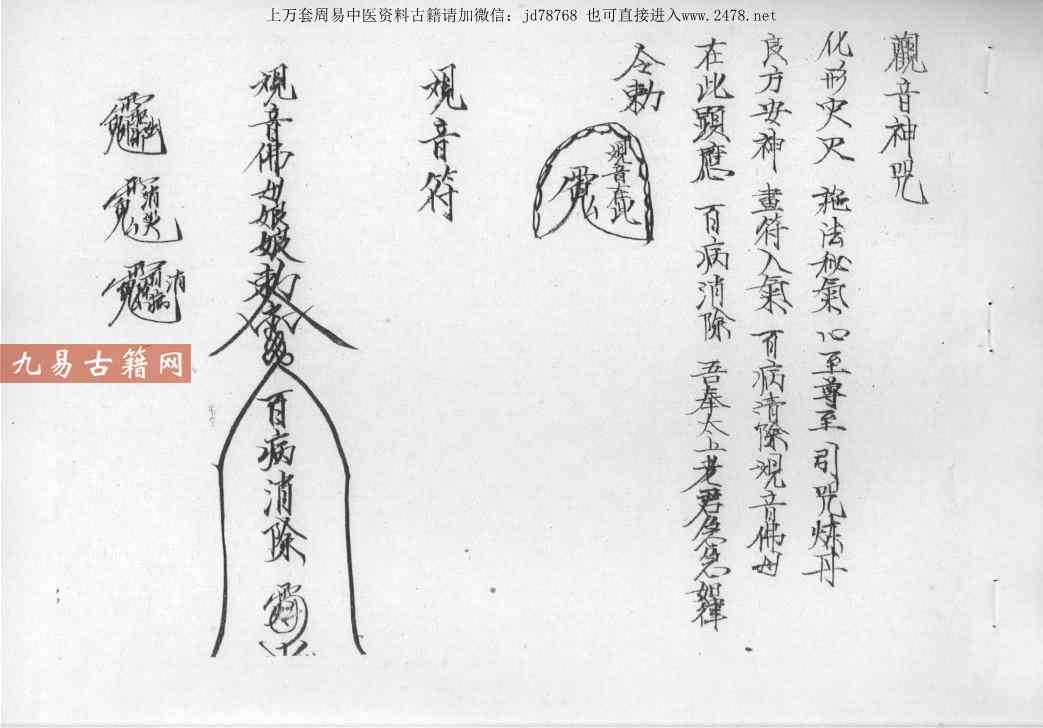 上万套周易中医资料古籍请加微信：jd78768 也可直接进入www.2478.net
觀音神咒
化形灾灭 施法秘氣 心至尊至 引咒炼丹
良方安神 畫符入氣 百病清除 观音佛母
在此顕應 百病消除 吾奉太上老君急急如律
令勅
观音在此
观音符
观音佛母娘娘勅令
百病消除
九易古籍网